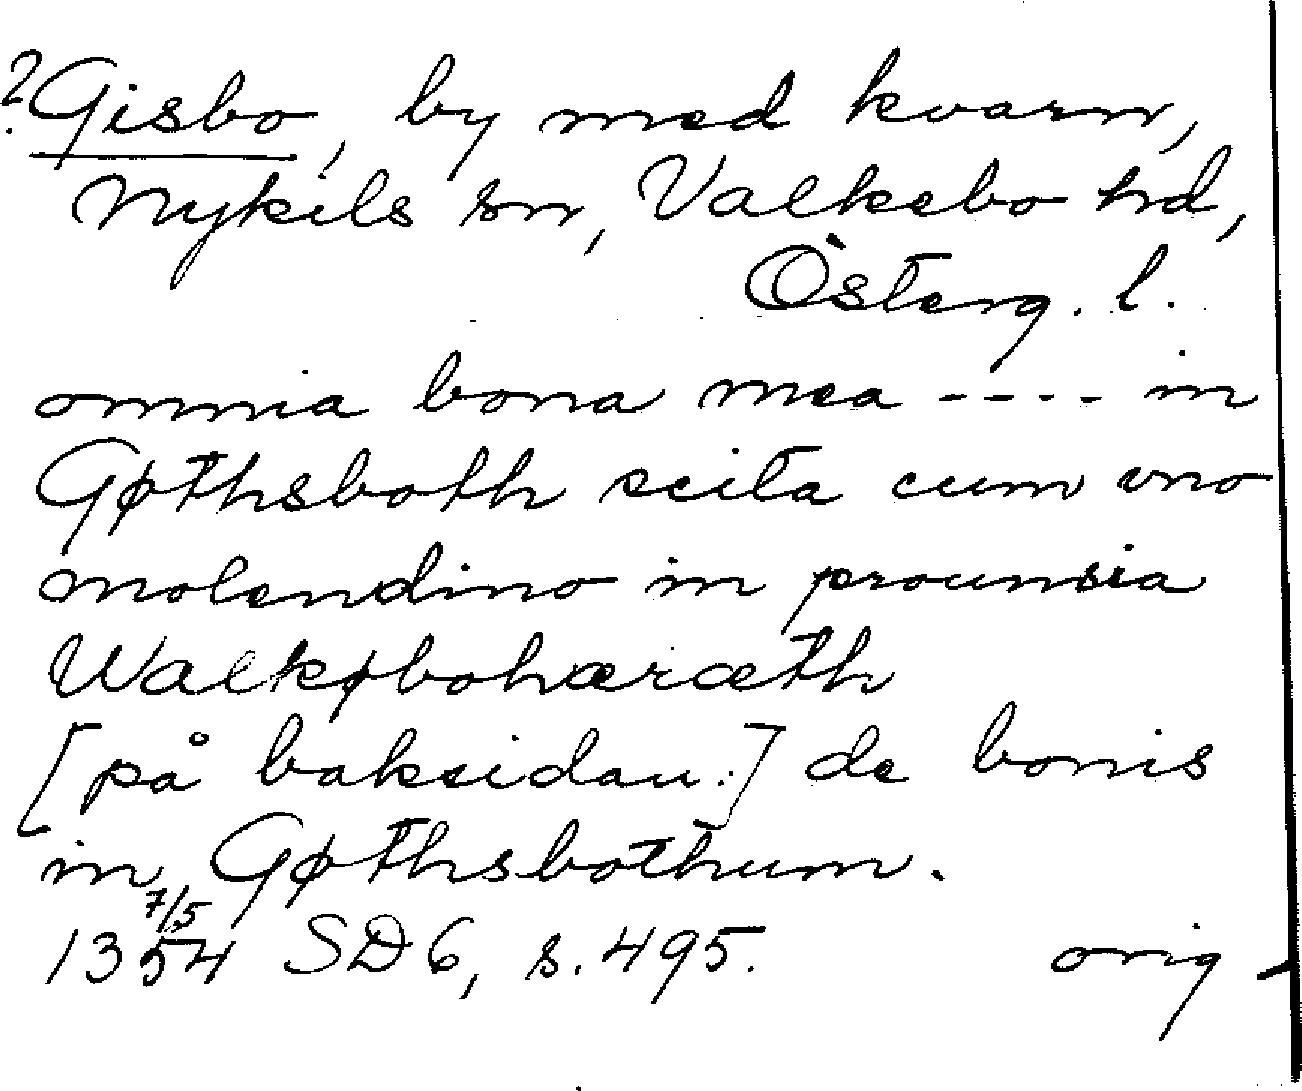 ? Gisbo, by med kvarn,
Nykils sn, Valkebo hd,
Österg. l.
omnia bona mea ---- in
Gøthsboth scita cum vno
molendino in prouinsia
Walkøbohæræth
[på baksidan:] de bonis
in Gøthsbothum.
1354 7/5 SD 6, s. 495. orig